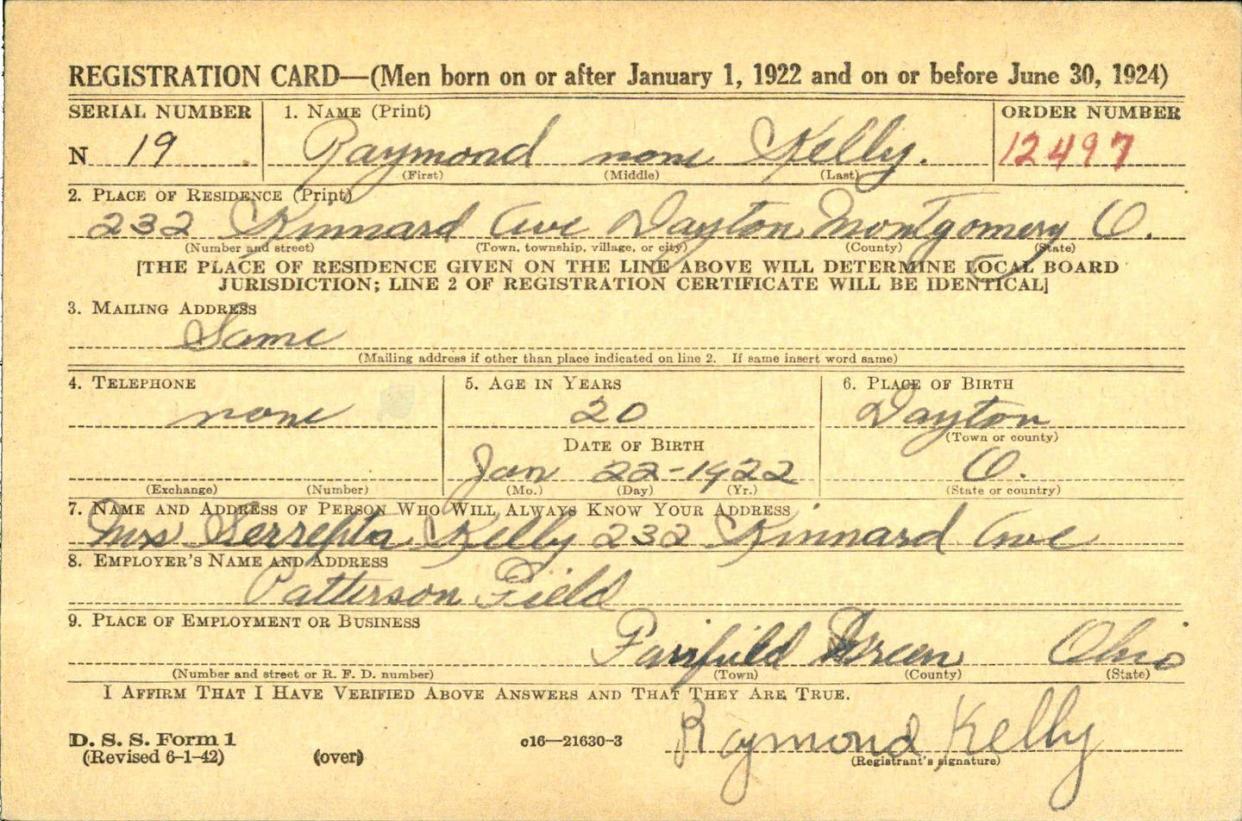 REGISTRATION CARD—(Men born on or after January 1, 1922 and on or before June 30, 1924)
SERIAL NUMBER 1. NAME (Print) ORDER NUMBER
N 19 Raymond none Kelly. 12497
(First) (Middle) (Last)
2. PLACE OF RESIDENCE (Print)
232 Kinnard Ave Dayton Montgomery O.
(Number and street) (Town, township, village, or city) (County) (State)
[THE PLACE OF RESIDENCE GIVEN ON THE LINE ABOVE WILL DETERMINE LOCAL BOARD
JURISDICTION; LINE 2 OF REGISTRATION CERTIFICATE WILL BE IDENTICAL]
3. MAILING ADDRESS
Same
(Mailing address if other than place indicated on line 2. If same insert word same)
4. TELEPHONE 5. AGE IN YEARS 6. PLACE OF BIRTH
none 20 Dayton
(Town or county)
DATE OF BIRTH
Jan 22-1922 O.
(Exchange) (Number) (Mo.) (Day) (Yr.) (State or country)
7. NAME AND ADDRESS OF PERSON WHO WILL ALWAYS KNOW YOUR ADDRESS
Mrs Serrepta Kelly 232 Kinnard Ave
8. EMPLOYER'S NAME AND ADDRESS
Patterson Field
9. PLACE OF EMPLOYMENT OR BUSINESS
Fairfield Green Ohio
(Number and street or R. F. D. number) (Town) (County) (State)
I AFFIRM THAT I HAVE VERIFIED ABOVE ANSWERS AND THAT THEY ARE TRUE.
D. S. S. Form 1
(Revised 6-1-42) (over) c16—21630-3 Raymond Kelly
(Registrant's signature)